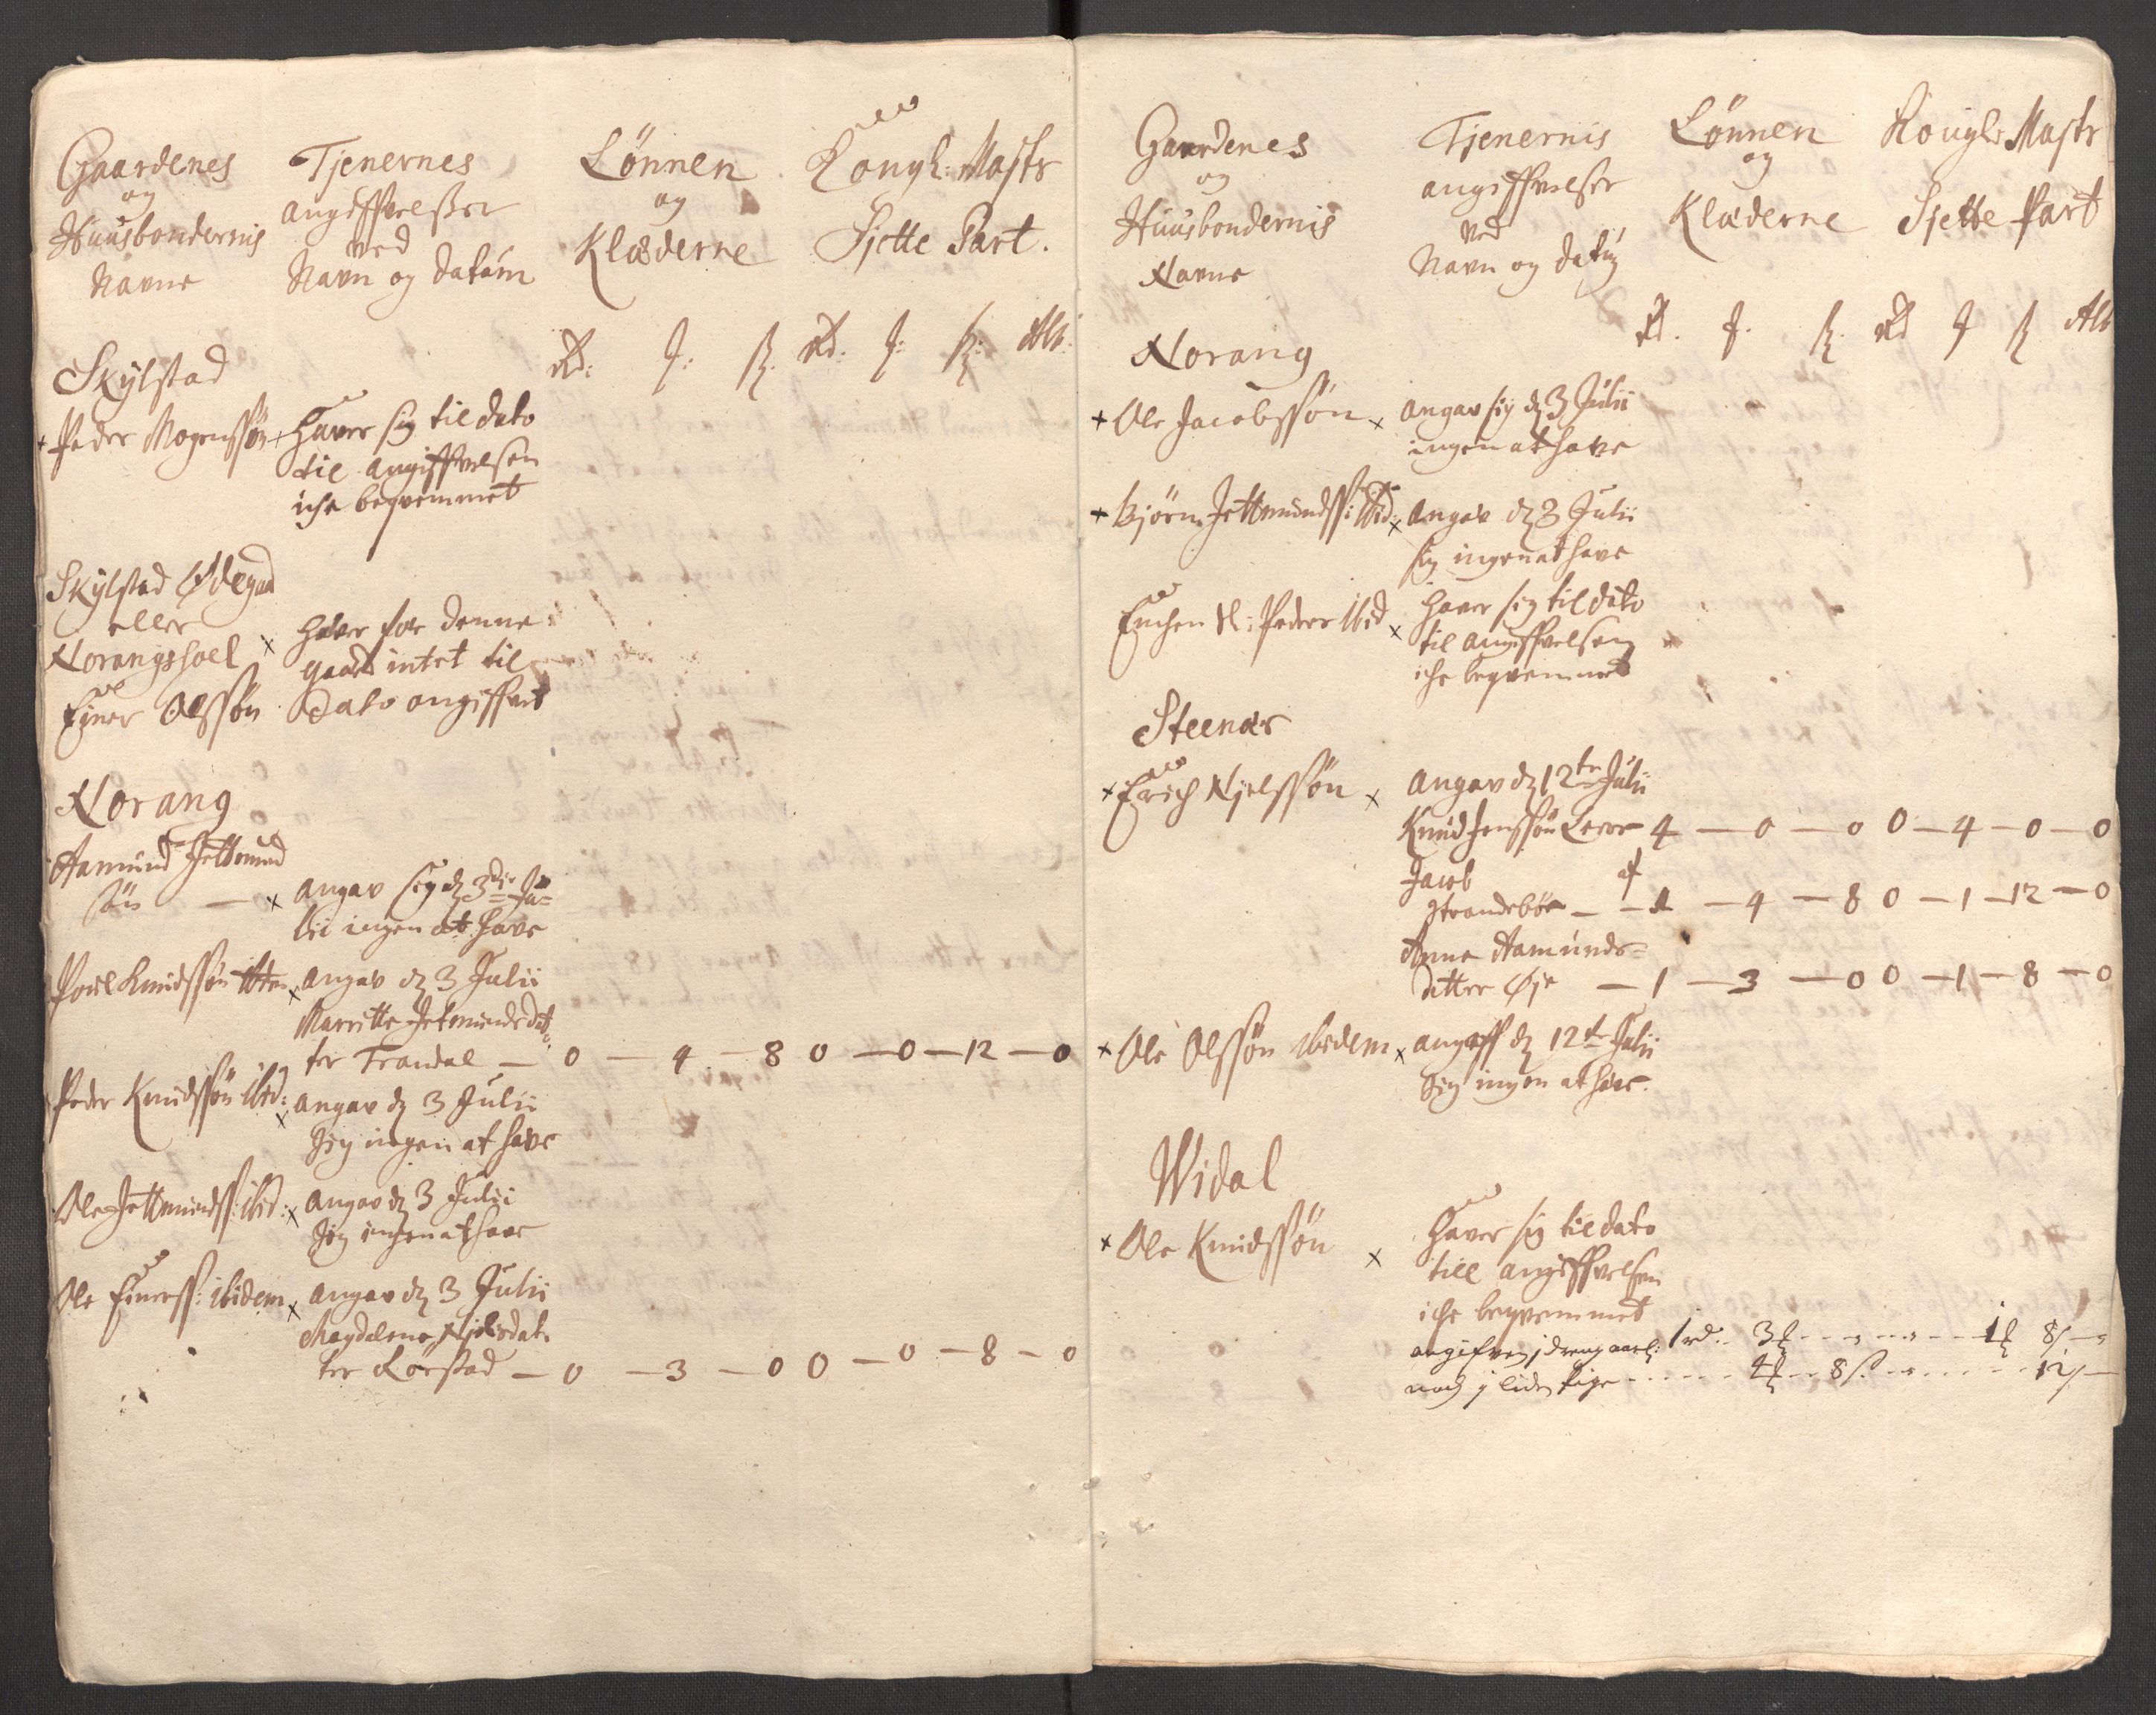 Gaardenes
og
Huusbondernis
Navne
Tjenernes
angiffvelßer
ved
Navn og datum
Lönnen
og
Klæderne
Kongl: Majts
Sjette Part.
Rd: ƒ: ß. Rd: ƒ: ß: Alb:
Skylstad
+ Peder Mogenssön + Haver sig til dato
til angiffvelsen
iche beqvemmet
Skylstad Ødegad
eller
Norangshoel x
Ejner Olssön
haver for denne
gaard intet til
Dato angiffvet
Norang
Aamund Jettmund
sön — x angav sig dz 3die Ju=
lii ingen at have
Poul Knudssön x angav dz 3 Julii
Marritte Jetmundsdat
ter Trandal — 0 — 4 — 8 0 — 0 — 12 — 0
Peder Knudssön ibid: x angav dz 3 Julii
sig ingen at have
Ole Jettmundss: ibid: x angav dz 3 Julii
sig ingen at have
Ole Ejnerss: ibidem x angav dz 3 Julii
Magdalene Njelsdat
ter Lörstad — 0 — 3 — 0 0 — 0 — 8 — 0
Gaardenes
og
Huusbondernis
Navne
Tjenernis
angiffvelser
ved
Navn og datum
Lönnen
og
Klæderne
Kongl: Majts
Sjette Part
Rd. ƒ. ß. Rd ƒ ß Alb
Norang
+ Ole Jacobssön x angav sig dz 3 Julii
ingen at have
+ Björn Jettmundss: ibid: x angav dz 3 Julii
sig ingen at have
Enchen Sl: Peders ibid x haver sig til dato
til angiffvelsen
iche beqvemmet
Steenæs
+ Erich Njelssön x angav dz 12te Julii
Knud Jenssön 4 — 0 — 0 0 — 4 — 0 — 0
Jacob af
Strandeböe — 1 — 4 — 8 0 — 1 — 12 — 0
Anne Aamunds=
datter Øje — 1 — 3 — 0 0 — 1 — 8 — 0
+ Ole Olssön ibidem x angaff dz 12te Julii
sig ingen at have.
Widal
+ Ole Knudssön x haver sig til dato
till angiffvelsen
iche beqvemmet
angifven j dreng aarl: 1 rd. 3 ƒ - - - - 1 ƒ 8 ß —
noch j liden pige - - - - 4 ƒ - 8 ß. - - - - 12 ß —